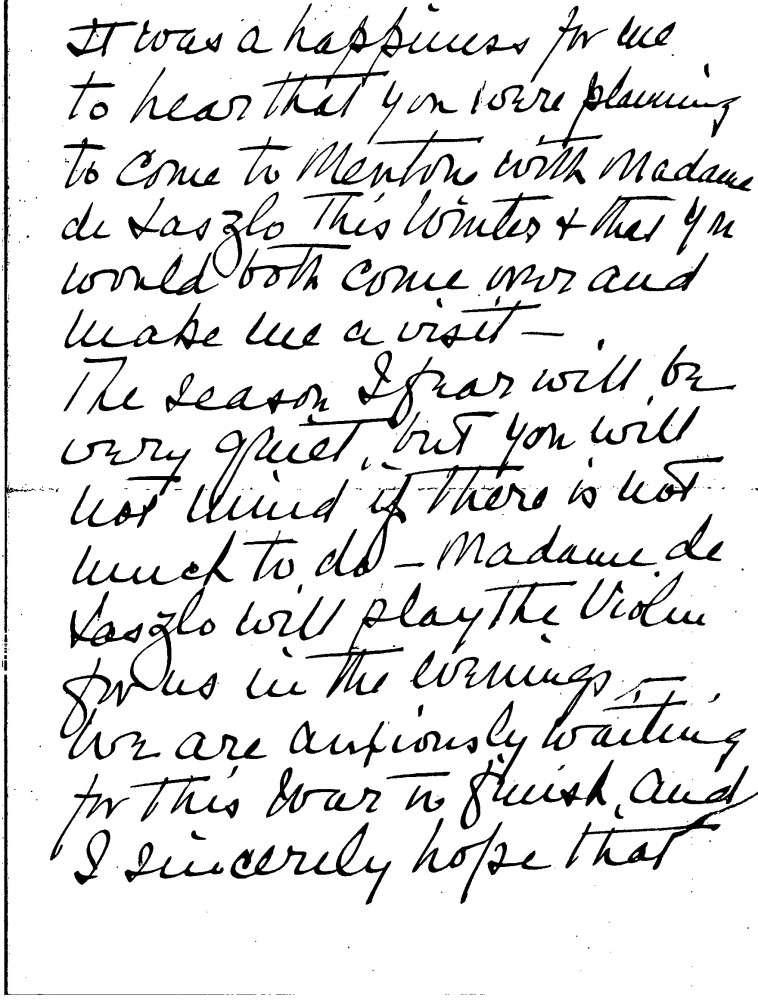 It was a happiness for me
to hear that you were planning
to come to Menton with Madame
de Laszlo this Winter & that you
would both come over and
make me a visit —
The season I fear will be
very quiet, but you will
not mind if there is not
much to do – Madame de
Laszlo will play the Violin
for us in the evenings –
We are anxiously waiting
for this War to finish, and
I sincerely hope that